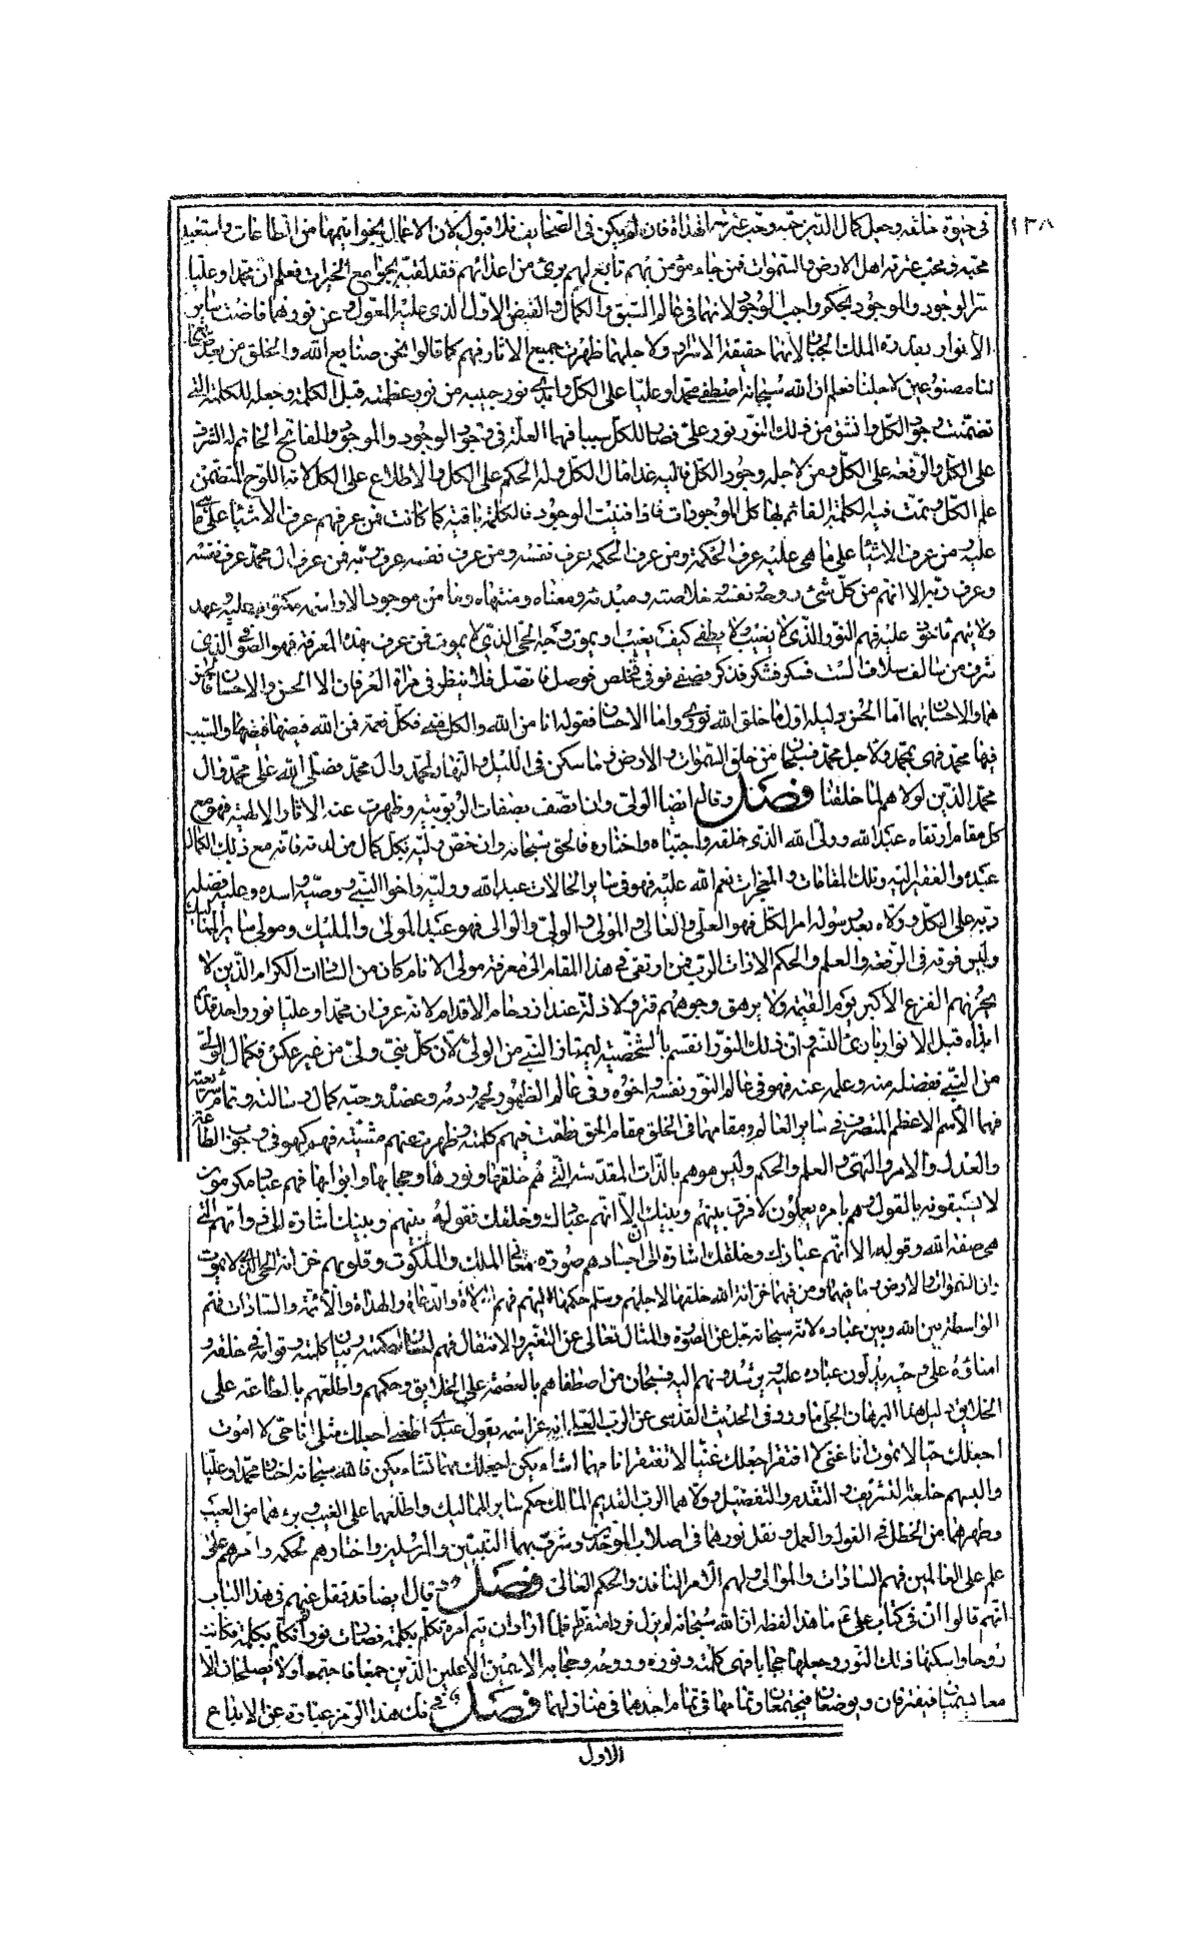 ١٣٨
فى حيوة خلقه وجعل كمال الدين حبه وحب عترته الهداة فان لم يكن فى الصحايف فلا قبول لان الاعمال بخواتيمها من الطاعات واستعبد
بمحبته ومحبة عترته اهل الارض والسموات فمن جاء مؤمن بهم تابع لهم برئ من اعدائهم فقد لقيه بجوامع الخيرات فعلم ان محمدا وعليا
سر الوجود والموجود بحكم واجب الوجود لانهما فى عالم السبق والكمال والفيض الاول الذى عليه المعول وعن نورهما فاضت ساير
الانوار بقدرة الملك الجبار لانهما حقيقة الاسرار ولاجلهما ظهرت جميع الاثار فهم كما قالوا نحن صنايع الله والخلق من بعد صنايع
لنا مصنوعين لاجلنا فعلم ان الله سبحانه اصطفى محمدا وعليا على الكل وابدى نور حبيبه من نور عظمته قبل الكلمة وجعله للكلمة التى
تضمنت وجود الكل واشتق من ذلك النور نور على فصار للكل سببا فهما العلة فى وجود الوجود والموجود والفاتح الخاتم له الشرف
على الكل والرفعة على الكل ومن لاجله وجود الكل فاليه غدا مال الكل وله الحكم على الكل والاطلاع على الكل لانه اللوح المتضمن
علم الكل وتمت فيه الكلمة القائم بها كل الموجودات فاذا فنيت الوجود فالكلمة باقية كما كانت فمن عرفهم عرف الاشياء على ما هى
عليه ومن عرف الاشياء على ما هى عليه عرف الحكمة ومن عرف الحكمة عرف نفسه ومن عرف نفسه عرف ربه فمن عرف ال محمد عرف نفسه
وعرف ربه الا انهم من كل شئ روحه نفسه خلاصته ومبدئه ومعناه ومنتهاه وما من موجود الا واسمه مكتوب عليه عهد
ولايتهم ماخوذ عليه فهم النور الذى لا يغيب ولا يطفى كيف يغيب او يموت وجه الحى الذى لا يموت فمن عرف بهذه المعرفة فهو الصوفى الذى
شرف من سالف سلاف الست فسكر فشكر فذكر فصفى فوفى فخلص فوصل فاتصل فلا ينظر فى مراة العرفان الا الحسن والاحسان
هما والاحسان بهما اما الحسن دليله اول ما خلق الله نورى واما الاحسان فقوله انا من الله والكل منى فكل نعمة فمن الله فيضها والسبب
فيها محمد فهى بمحمد ولاجل محمد فسبحان من خلق السموات والارض وما سكن فى الليل والنهار لمحمد وال محمد فصلى الله على محمد وال
محمد الذين لولاهم لما خلقنا فصل وقال ايضا الولى وان اتصف بصفات الربوبية وظهرت عنه الاثار الالهية فهو مع
كل مقام ارتقاه عبد الله وولى الله الذى خلقه واجتباه واختاره فالحق سبحانه وان خص وليه بكل كمال من لدنه فانه مع ذلك الكمال
عبده والفقير اليه وتلك المقامات والمعجزات نعم الله عليه فهو فى ساير الحالات عبد الله ووليه واخو النبى ووصيه واسده وعليه فضله
ربه على الكل وولاه بعد رسوله امر الكل فهو العلى والعالى والمولى والولى والوالى فهو عبد المولى والمليك ومولى ساير المماليك
وليس فوقه فى الرفعة والعلم والحكم الا ذات الرب فمن ارتقى فى هذا المقام الى معرفة مولى الانام كان من السادات الكرام الذين لا
يحزنهم الفزع الاكبر يوم القيمة ولا يرهق وجوههم قتر ولا ذلة عند ازدحام الاقدام لانه عرف ان محمدا وعليا نور واحد
ابداه قبل الانوار بارئ النسم وان ذلك النور انقسم بالشخصية ليمتاز النبى من الولى لان كل نبى ولى من غير عكس فكمال الولى
من النبى فضله منه وعلمه عنه فهو فى عالم النور نفسه واخوه وفى عالم الظهور لحمه ودمه وعضده وحبه كمال رسالته وتمام شريعته
فهما الاسم الاعظم المتصرف فى ساير العالم ومقامهما فى الخلق مقام الحق نطقت فيهم كلمته وظهرت عنهم مشيته فهم كهو فى وجوب الطاعة
والعدل والامر والنهى والعلم والحكم وليس هو هم بالذات المقدسة التى هم خلقها ونورها وحجابها وابوابها فهم عباد مكرمون
لا يسبقونه بالقول وهم بامره يعملون لا فرق بينهم وبينك الا انهم عبادك وخلقك فقوله بينهم وبينك اشارة الى ذواتهم التى
هى صفة الله وقوله الا انهم عبادك وخلقك اشارة الى اجسادهم صورة معانى الملك والملكوت وقلوبهم خزانة الحى الذى لا يموت
وان السموات والارض وما فيهما ومن فيهما خزانة الله خلقها لاجلهم وسلم حكمها اليهم فهم الولاة والدعاة والهداة والائمة والسادات فهم
الواسطة بين الله وبين عباده لانه سبحانه جل عن الصورة والمثال تعالى عن التغير والانتقال فهم لسان حكمته وبيان كلمته وقوامه فى خلقه و
امناؤه على وحيه يدلون عباده عليه ويرشدونهم اليه فسبحان من اصطفاهم بالعصمة على الخلايق وحكمهم واطلعهم بالطاعة على
الخلايق دليل هذا البرهان الجلى ما ورد فى الحديث القدسى عن الرب العلى انه عز اسمه يقول عبدى اطعنى اجعلك مثلى انا حى لا اموت
اجعلك حيا لا تموت انا غنى لا افتقر اجعلك غنيا لا تفتقر انا مهما اشاء يكن اجعلك مهما تشاء يكن فالله سبحانه اختار محمدا وعليا
والبسهم خلعة التشريف والتقديم والتفضيل وولاهما الرب القديم المالك حكم ساير المماليك واطلعهما على الغيب وبرءهما من العيب
وطهرهما من الخطل فى القول والعمل ونقل نورهما فى اصلاب الموحدين وشرف بهما النبيين والمرسلين واختارهم لحكمه وامرهم على
علم على العالمين فهم السادات والموالى ولهم الامر النافذ والحكم العالى فصل وقال ايضا قد نقل عنهم فى هذا الباب
انهم قالوا ان فى كتاب على ما هذا لفظه ان الله سبحانه لم يزل فردا متفردا فلما اراد ان يتم امره تكلم بكلمة فصارت نورا ثم تكلم بكلمة فكانت
روحا واسكنها ذلك النور وجعلها حجابا فهى كلمته ونوره وروحه وحجابه الاسمين الاعلين الذين جمعا فاجتمعا ولا يصلحان الا
معا يسميان فيفترقان ويوضعان فيجتمعان وتمامهما فى تمام احدهما فى منازلهما فصل فى فك هذا الرمز عبارة عن الابداع
الاول